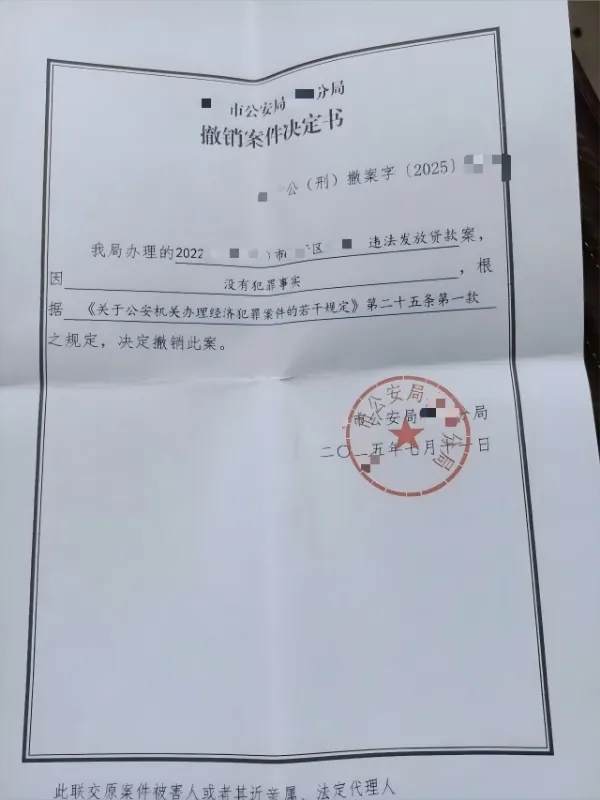 市公安局 分局
撤销案件决定书
公（刑）撤案字〔2025〕
我局办理的2022 市 区 违法发放贷款案，
因 没有犯罪事实 ，根
据 《关于公安机关办理经济犯罪案件的若干规定》第二十五条第一款
之规定，决定撤销此案。
市公安局 分局
二〇二五年七月 一日
市公安局 分局
此联交原案件被害人或者其近亲属、法定代理人